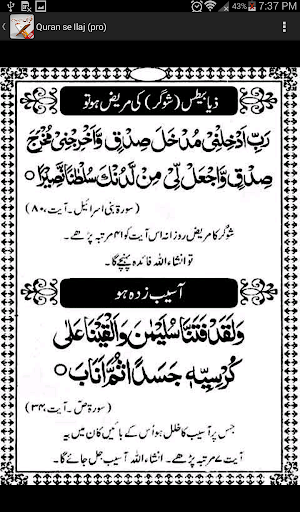 7:37 PM
Quran se Ilaj (pro)
ذیابیطس (شوگر) کی مریض ہو تو
رَبِّ اَدْخِلْنِیْ مُدْخَلَ صِدْقٍ وَّاَخْرِجْنِیْ مُخْرَجَ
صِدْقٍ وَّاجْعَلْ لِّیْ مِنْ لَّدُنْكَ سُلْطٰنًا نَّصِیْرًا
(سورۃ بنی اسرائیل۔ آیت، ۸۰)
شوگر کا مریض روزانہ اس آیت کو ۴۱ مرتبہ پڑھے۔
تو انشاء اللہ فائدہ پہنچے گا۔
آسیب زدہ ہو
وَلَقَدْ فَتَنَّا سُلَیْمٰنَ وَاَلْقَیْنَا عَلٰی
كُرْسِیِّهٖ جَسَدًا ثُمَّ اَنَابَ
(سورۃ صٓ۔ آیت، ۳۴)
جس پر آسیب کا خلل ہو اُس کے بائیں کان میں یہ
آیت ۷ مرتبہ پڑھے۔ انشاء اللہ آسیب جل جائے گا۔